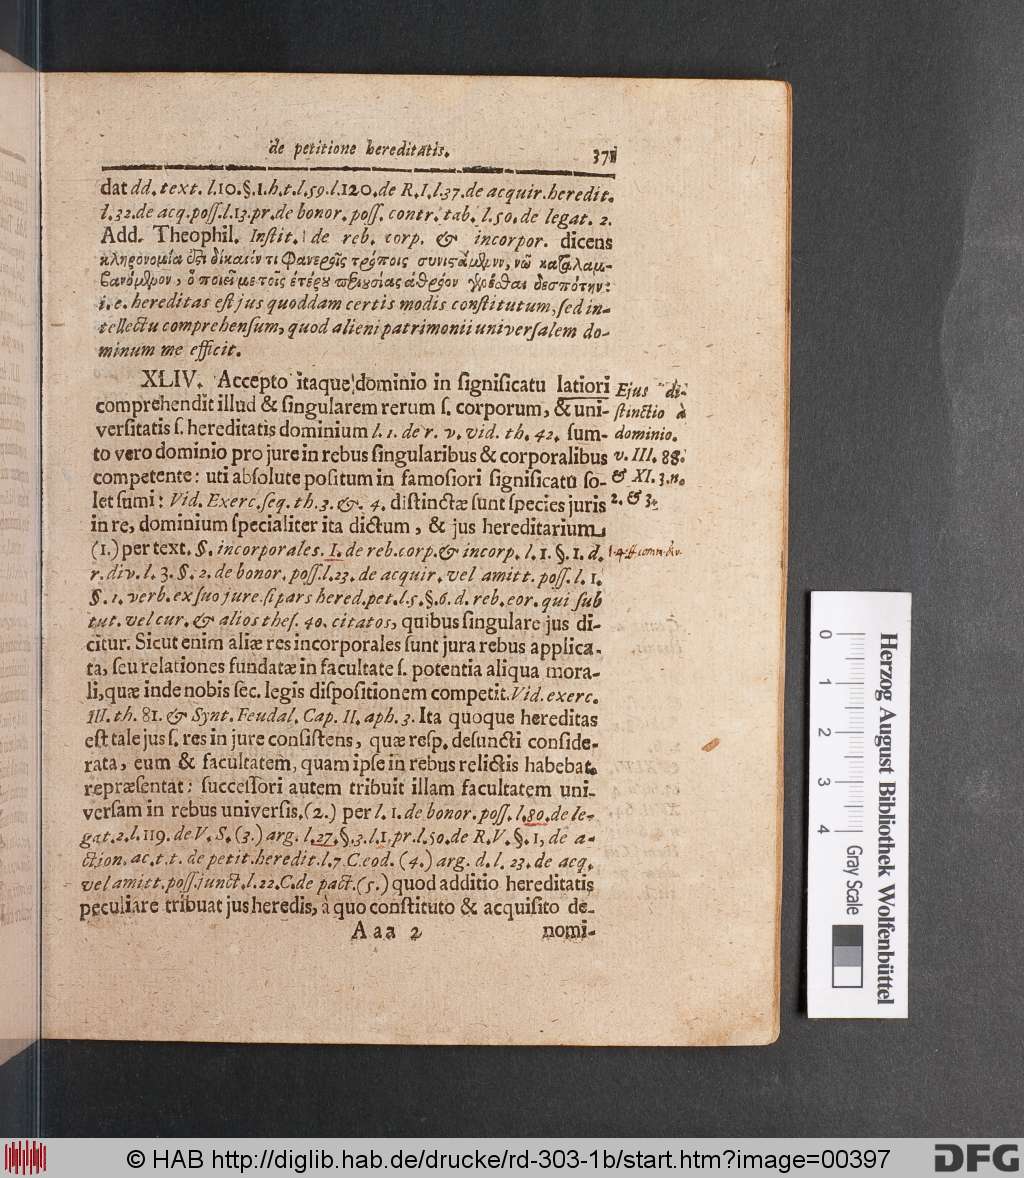 de petitione hereditatis. 371
dat dd. text. l.10.§.1.h.t.l.59.l.120.de R.I.l.37.de acquir.heredit.
l.32.de acq.poſſ.l.13.pr.de bonor. poſſ. contr. tab. l.50.de legat. 2.
Add. Theophil. Inſtit. de reb. corp. & incorpor. dicens
κληρονομία ἐςὶ δίκαιόν τι φανεροῖς τρόποις
ὁ ποιεῖ με τοῖς ἑτέρου δεσπότην:
i.e. hereditas eſt jus quoddam certis modis conſtitutum, ſed in-
tellectu comprehenſum, quod alieni patrimonii univerſalem do-
minum me efficit.
XLIV. Accepto itaque dominio in ſignificatu latiori
comprehendit illud & ſingularem rerum ſ. corporum, & uni-
verſitatis ſ. hereditatis dominium l. 1. de r. v. vid. th. 42. ſum-
to vero dominio pro jure in rebus ſingularibus & corporalibus
competente: uti abſolute poſitum in famoſiori ſignificatu ſo-
let ſumi: Vid. Exerc.ſeq. th. 3. &. 4. diſtinctæ ſunt ſpecies juris
in re, dominium ſpecialiter ita dictum, & jus hereditarium
(1.) per text. §. incorporales. 1. de reb.corp.& incorp. l. 1. §. 1. d.
r. div. l. 3. §. 2. de bonor. poſſ.l.23. de acquir. vel amitt. poſſ. l. 1.
§. 1. verb. ex ſuo jure. ſi pars hered.pet.l.5.§.6.d. reb.eor. qui ſub
tut. vel cur. & alios theſ. 40. citatos, quibus ſingulare jus di-
citur. Sicut enim aliæ res incorporales ſunt jura rebus applica-
ta, ſeu relationes fundatæ in facultate ſ. potentia aliqua mora-
li, quæ inde nobis ſec. legis diſpoſitionem competit. Vid. exerc.
III. th. 81. & Synt. Feudal. Cap. II. aph. 3. Ita quoque hereditas
eſt tale jus ſ. res in jure conſiſtens, quæ reſp. defuncti conſide-
rata, eum & facultatem, quam ipſe in rebus relictis habebat.
repræſentat: ſucceſſori autem tribuit illam facultatem uni-
verſam in rebus univerſis. (2.) per l. 1. de bonor. poſſ. l.80. de le-
gat. 2. l. 119. de V. S. (3.) arg. l.27.§.3.l.1.pr.l.50.de R.V. §. 1, de a-
ction. ac. t. t. de petit. heredit. l. 7. C. eod. (4.) arg. d. l. 23. de acq.
vel amitt. poſſ. junct. l. 22. C. de pact. (5.) quod additio hereditatis
peculiare tribuat jus heredis, à quo conſtituto & acquiſito de-
Aaa 2 nomi-
Ejus di-
ſtinctio à
dominio.
v. III. 88.
& XI. 3. n.
2. & 3.
Herzog August Bibliothek Wolfenbüttel
0 1 2 3 4
Gray Scale
© HAB http://diglib.hab.de/drucke/rd-303-1b/start.htm?image=00397
DFG